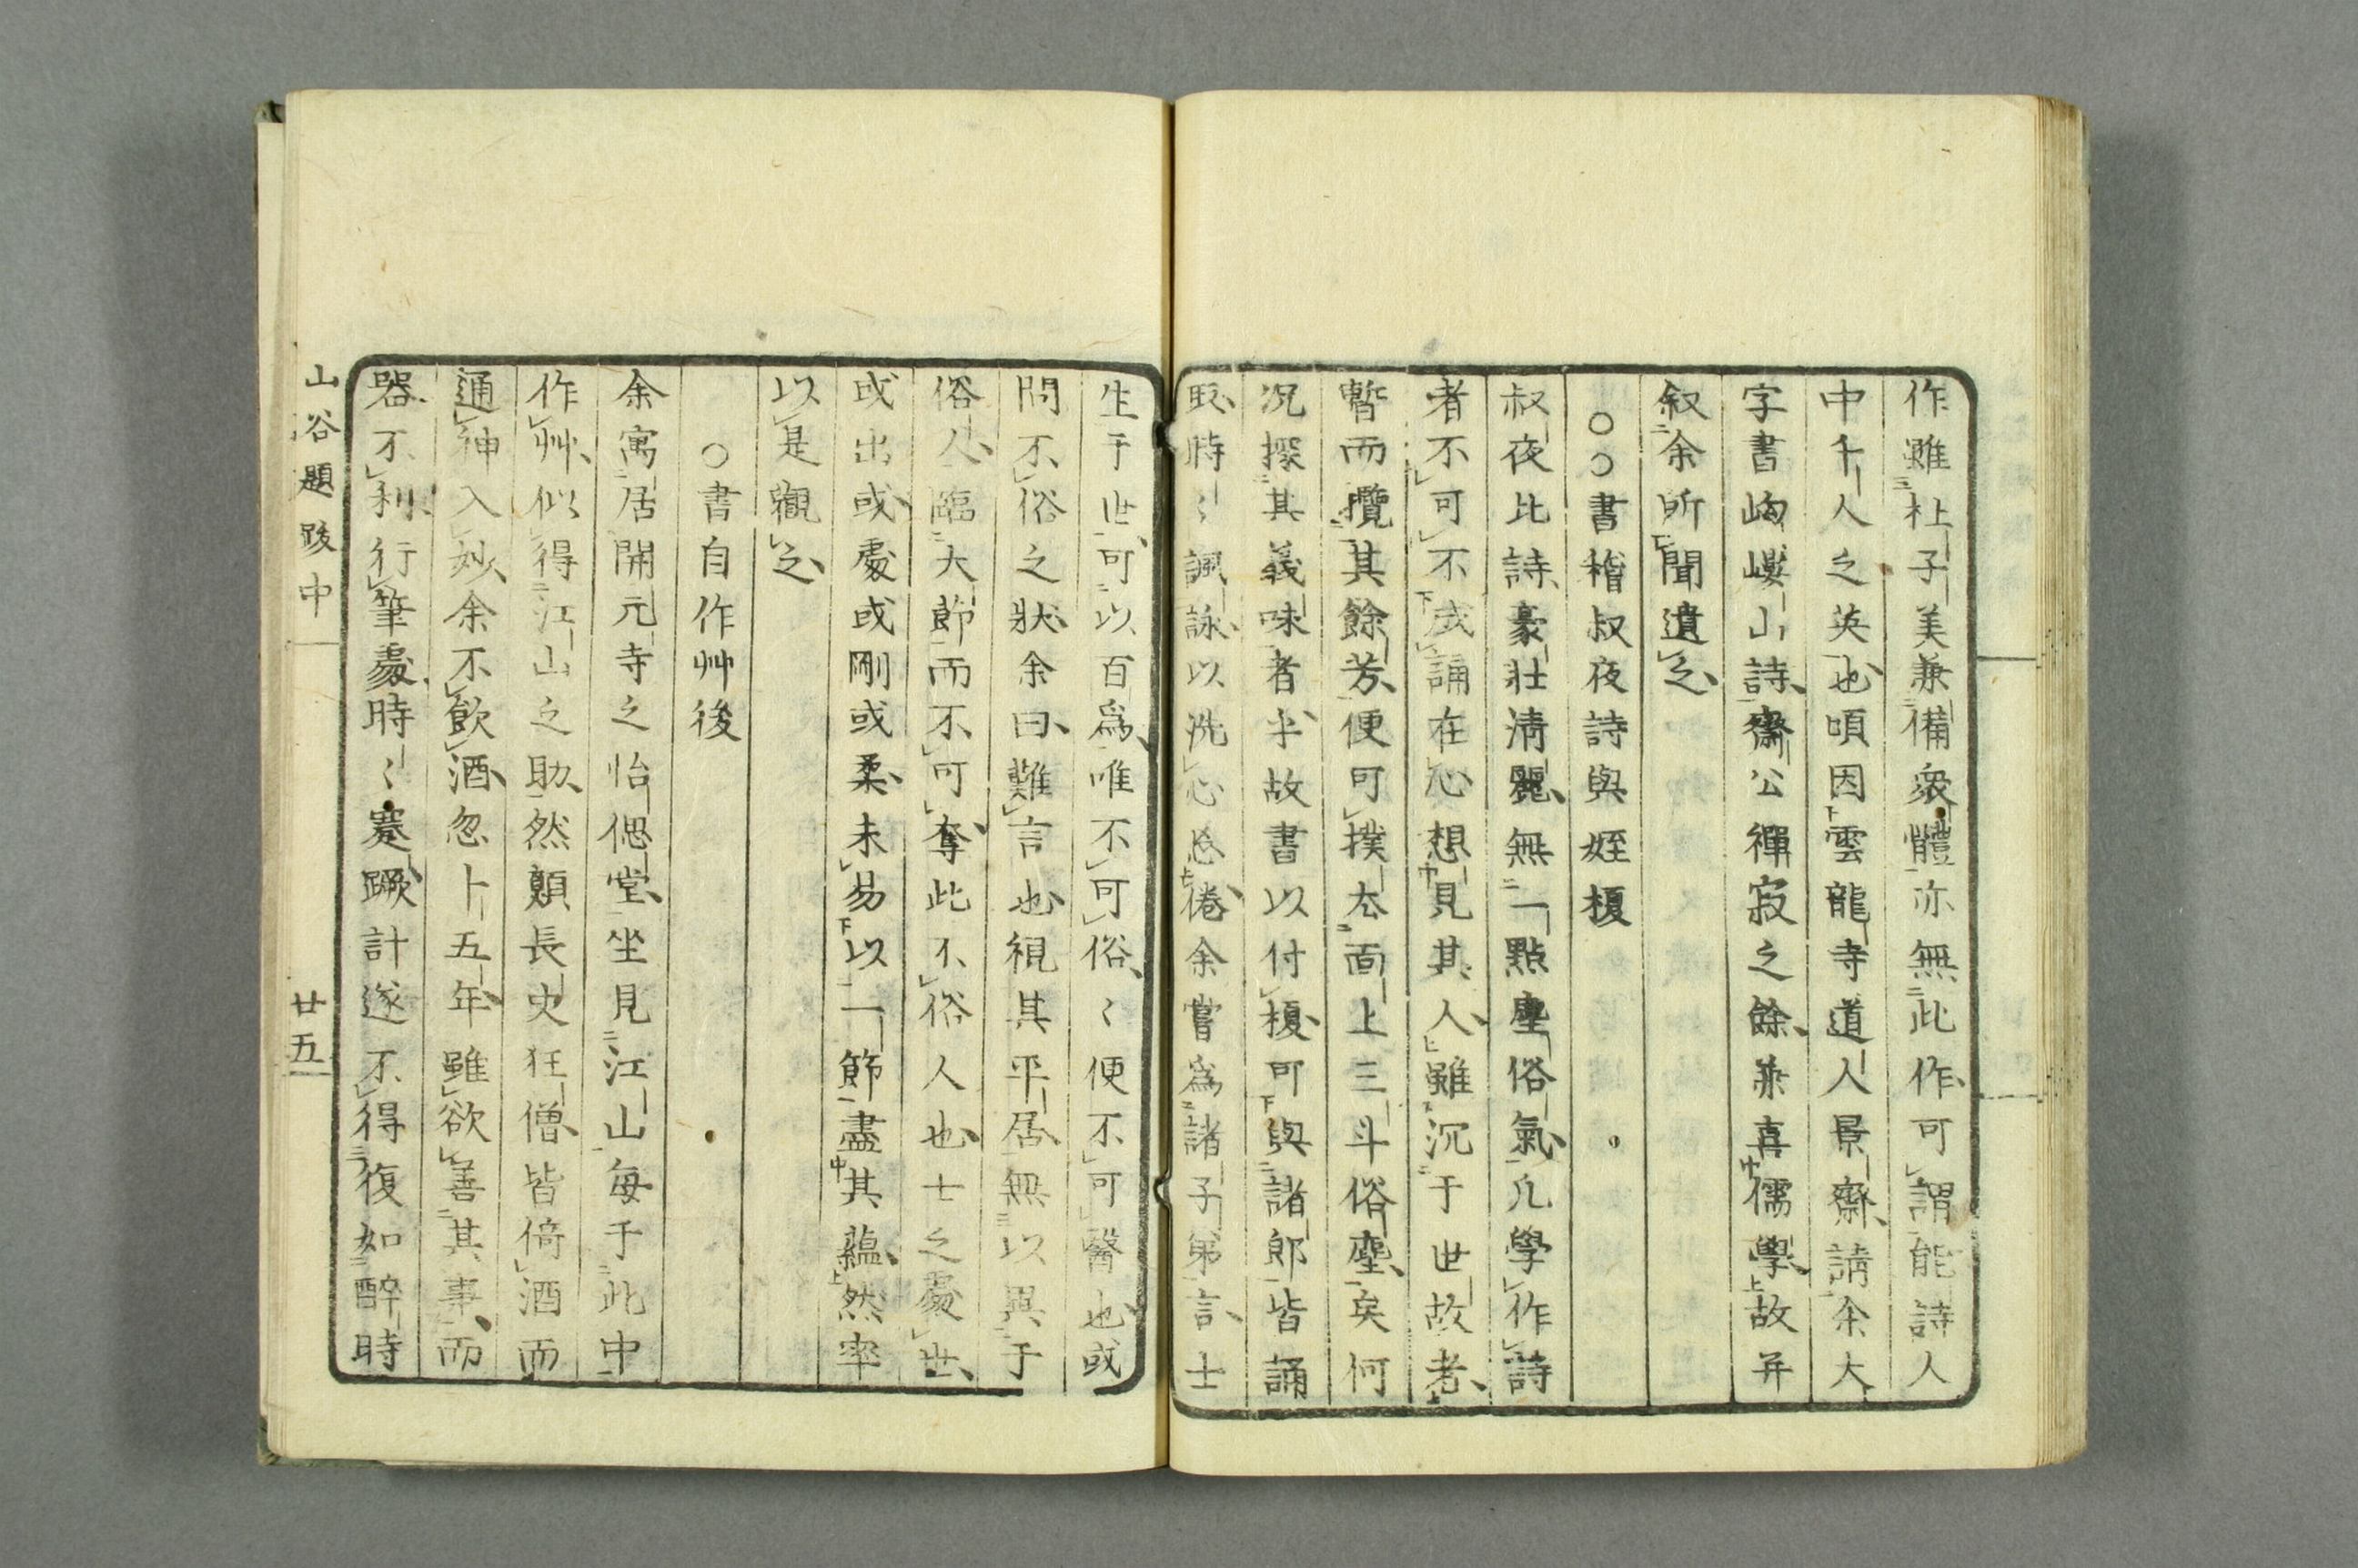 作雖杜子美兼備衆體亦無此作可謂能詩人
中千人之英也頃因雲龍寺道人景齋請余大
字書岣嶁山詩齋公禪寂之餘兼喜儒學故并
叙余所聞遺之
○○書稽叔夜詩與姪榎
叔夜比詩豪壯清麗無一點塵俗氣凡學作詩
者不可不成誦在心想見其人雖沉于世故者
暫而攬其餘芳便可撲去面上三斗俗塵矣何
況探其義味者乎故書以付榎可與諸郎皆誦
取時〻諷詠以洗心忘倦余嘗爲諸子弟言士
生于世可以百爲唯不可俗〻便不可醫也或
問不俗之狀余曰難言也視其平居無以異于
俗人臨大節而不可奪此不俗人也士之處世
或出或處或剛或柔未易以一節盡其蘊然率
以是觀之
○書自作艸後
余寓居開元寺之怡偲堂坐見江山每于此中
作艸似得江山之助然顛長史狂僧皆倚酒而
通神入妙余不飲酒忽卜五年雖欲善其事而
器不利行筆處時〻蹇蹶計遂不得復如醉時
山谷題跋中
廿五